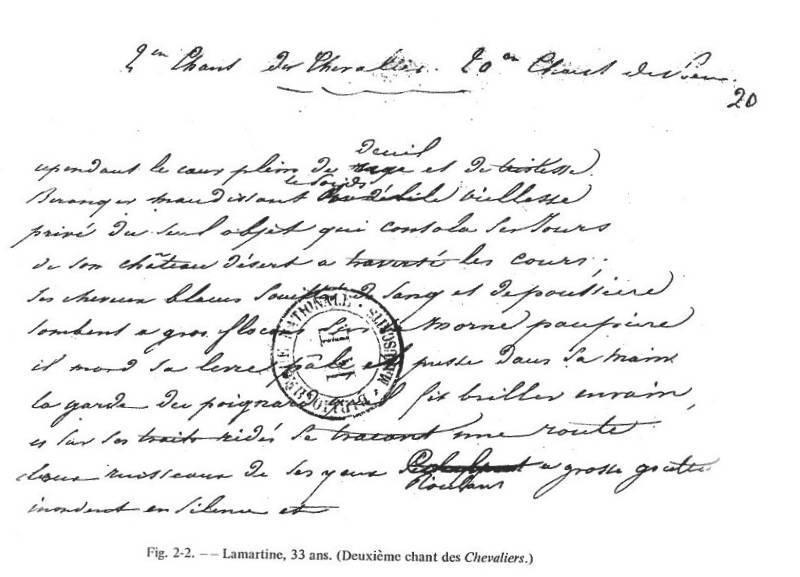 2em Chant des Chevaliers. 20em Chant du Poème.
20
deuil
cependant le cœur plein de rage et de tristesse.
le poids
Beranger maudissant débile vieillesse
privé du seul objet qui consola ses Jours
de son château désert a traversé les cours;
ses cheveux blancs souillés de sang et de poussière
tombent a gros flocons sur sa morne paupière
il mord sa levre pâle et presse dans sa main
la garde du poignard qu'il fit briller en vain,
et sur ses traits ridés se tracant une route
deux ruisseaux de ses yeux a grosse goutte
Roulans
inondent en silence et
BIBLIOTHEQUE NATIONALE · MANUSCRITS ·
Fig. 2-2. –– Lamartine, 33 ans. (Deuxième chant des Chevaliers.)